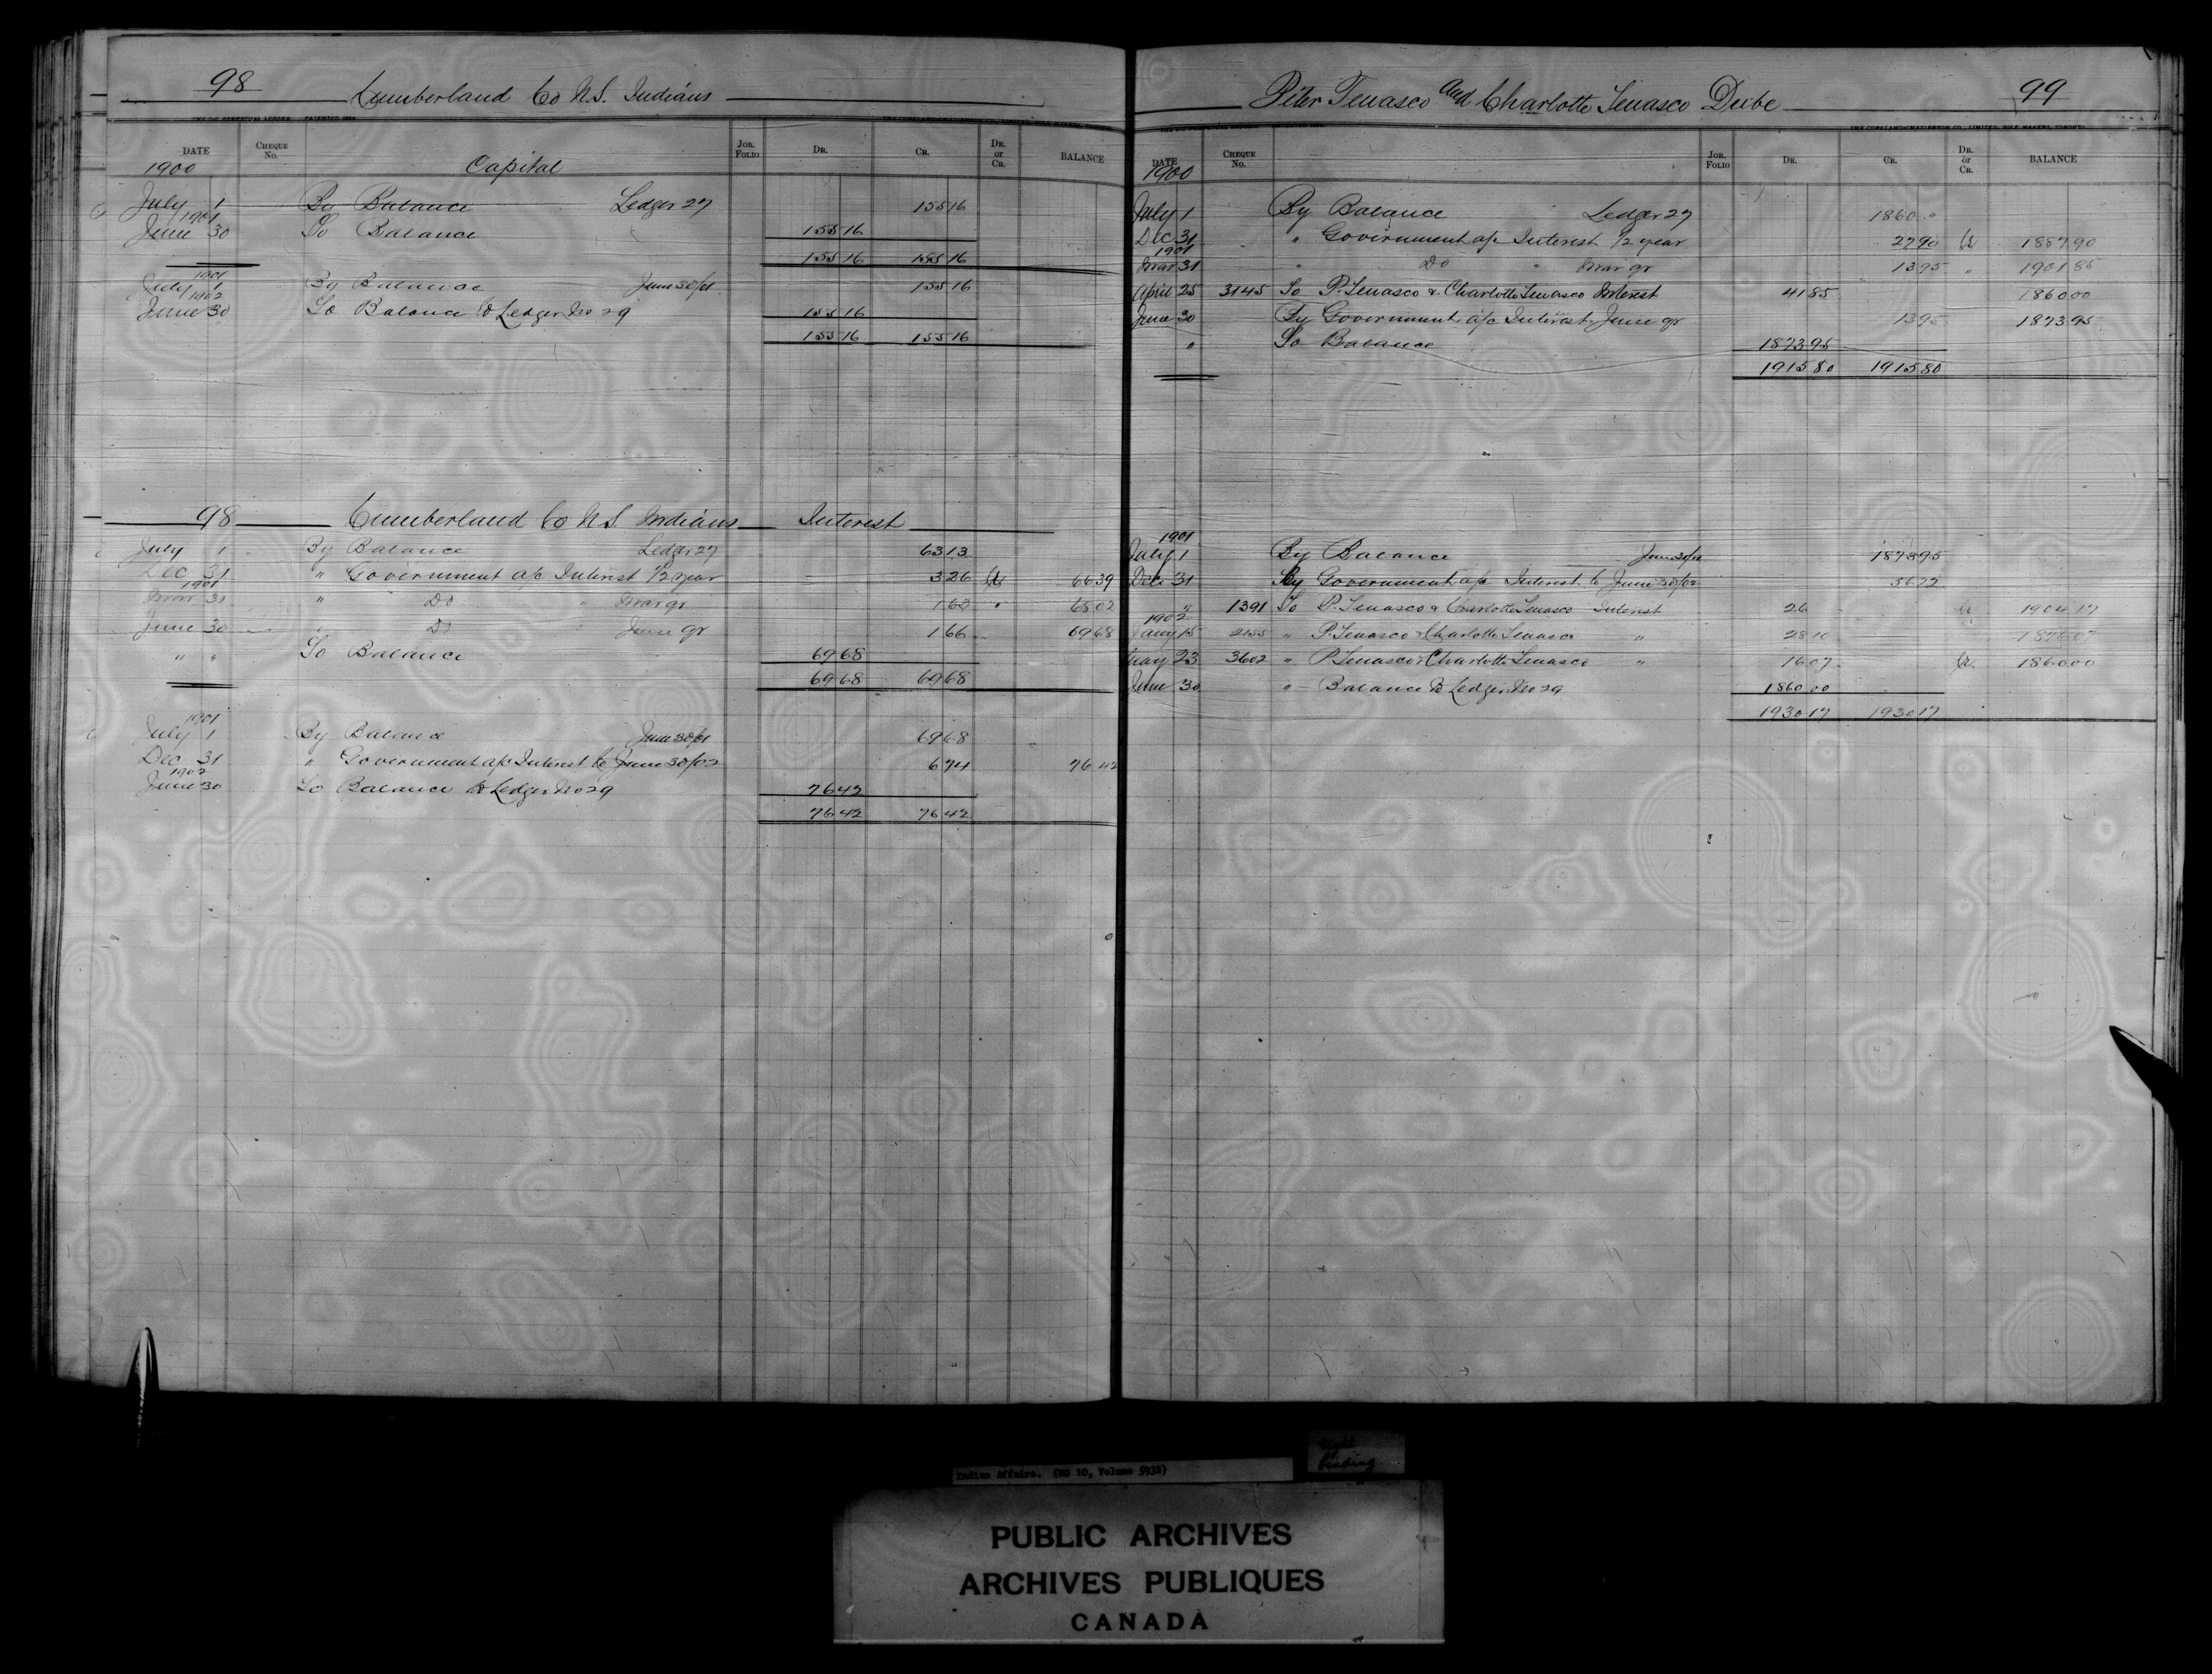 98 Cumberland Co N.S. Indians
DATE CHEQUE No. Capital JOR. FOLIO DR. CR. DR. or CR. BALANCE
1900
July 1 By Balance Ledger 27 155 16
1901
June 30 To Balance 155 16
155 16 155 16
1901
July 1 By Balance June 30/01 155 16
1902
June 30 To Balance to Ledger No 29 155 16
155 16 155 16
98 Cumberland Co N.S. Indians Interest
July 1 By Balance Ledger 27 63 13
Dec 31 " Government a/c Interest 1/2 year 3 26 Cr 66 39
1901
Mar 31 " Do " Mar qr 1 63 " 68 02
June 30 " Do " June qr 1 66 69 68
" " To Balance 69 68
69 68 69 68
1901
July 1 By Balance June 30/01 69 68
Dec 31 " Government a/c Interest to June 30/02 6 74 76 42
1902
June 30 To Balance to Ledger No 29 76 42
76 42 76 42
Peter Tenasco and Charlotte Tenasco Dube 99
DATE CHEQUE No. JOR. FOLIO DR. CR. DR. or CR. BALANCE
1900
July 1 By Balance Ledger 27 1860 "
Dec 31 " Government a/c Interest 1/2 year 27 90 Cr 1887 90
1901
Mar 31 " Do " Mar qr 13 95 " 1901 85
April 25 3145 To P. Tenasco & Charlotte Tenasco Interest 41 85 1860 00
June 30 By Government a/c Interest June qr 13 95 1873 95
" To Balance 1873 95
1915 80 1915 80
1901
July 1 By Balance 1873 95
Dec 31 By Government a/c Interest to June 30/02 56 22
" 1391 To P. Tenasco & Charlotte Tenasco Interest 26 Cr 1904 17
1902
Jany 15 2155 " P. Tenasco & Charlotte Tenasco " 28 10 1876 07
May 23 3602 " P. Tenasco & Charlotte Tenasco " 16 07 Cr. 1860 00
June 30 " Balance to Ledger No 29 1860 00
1930 17 1930 17
Indian Affairs. (RG 10, Volume 5932)
tight binding
PUBLIC ARCHIVES
ARCHIVES PUBLIQUES
CANADA